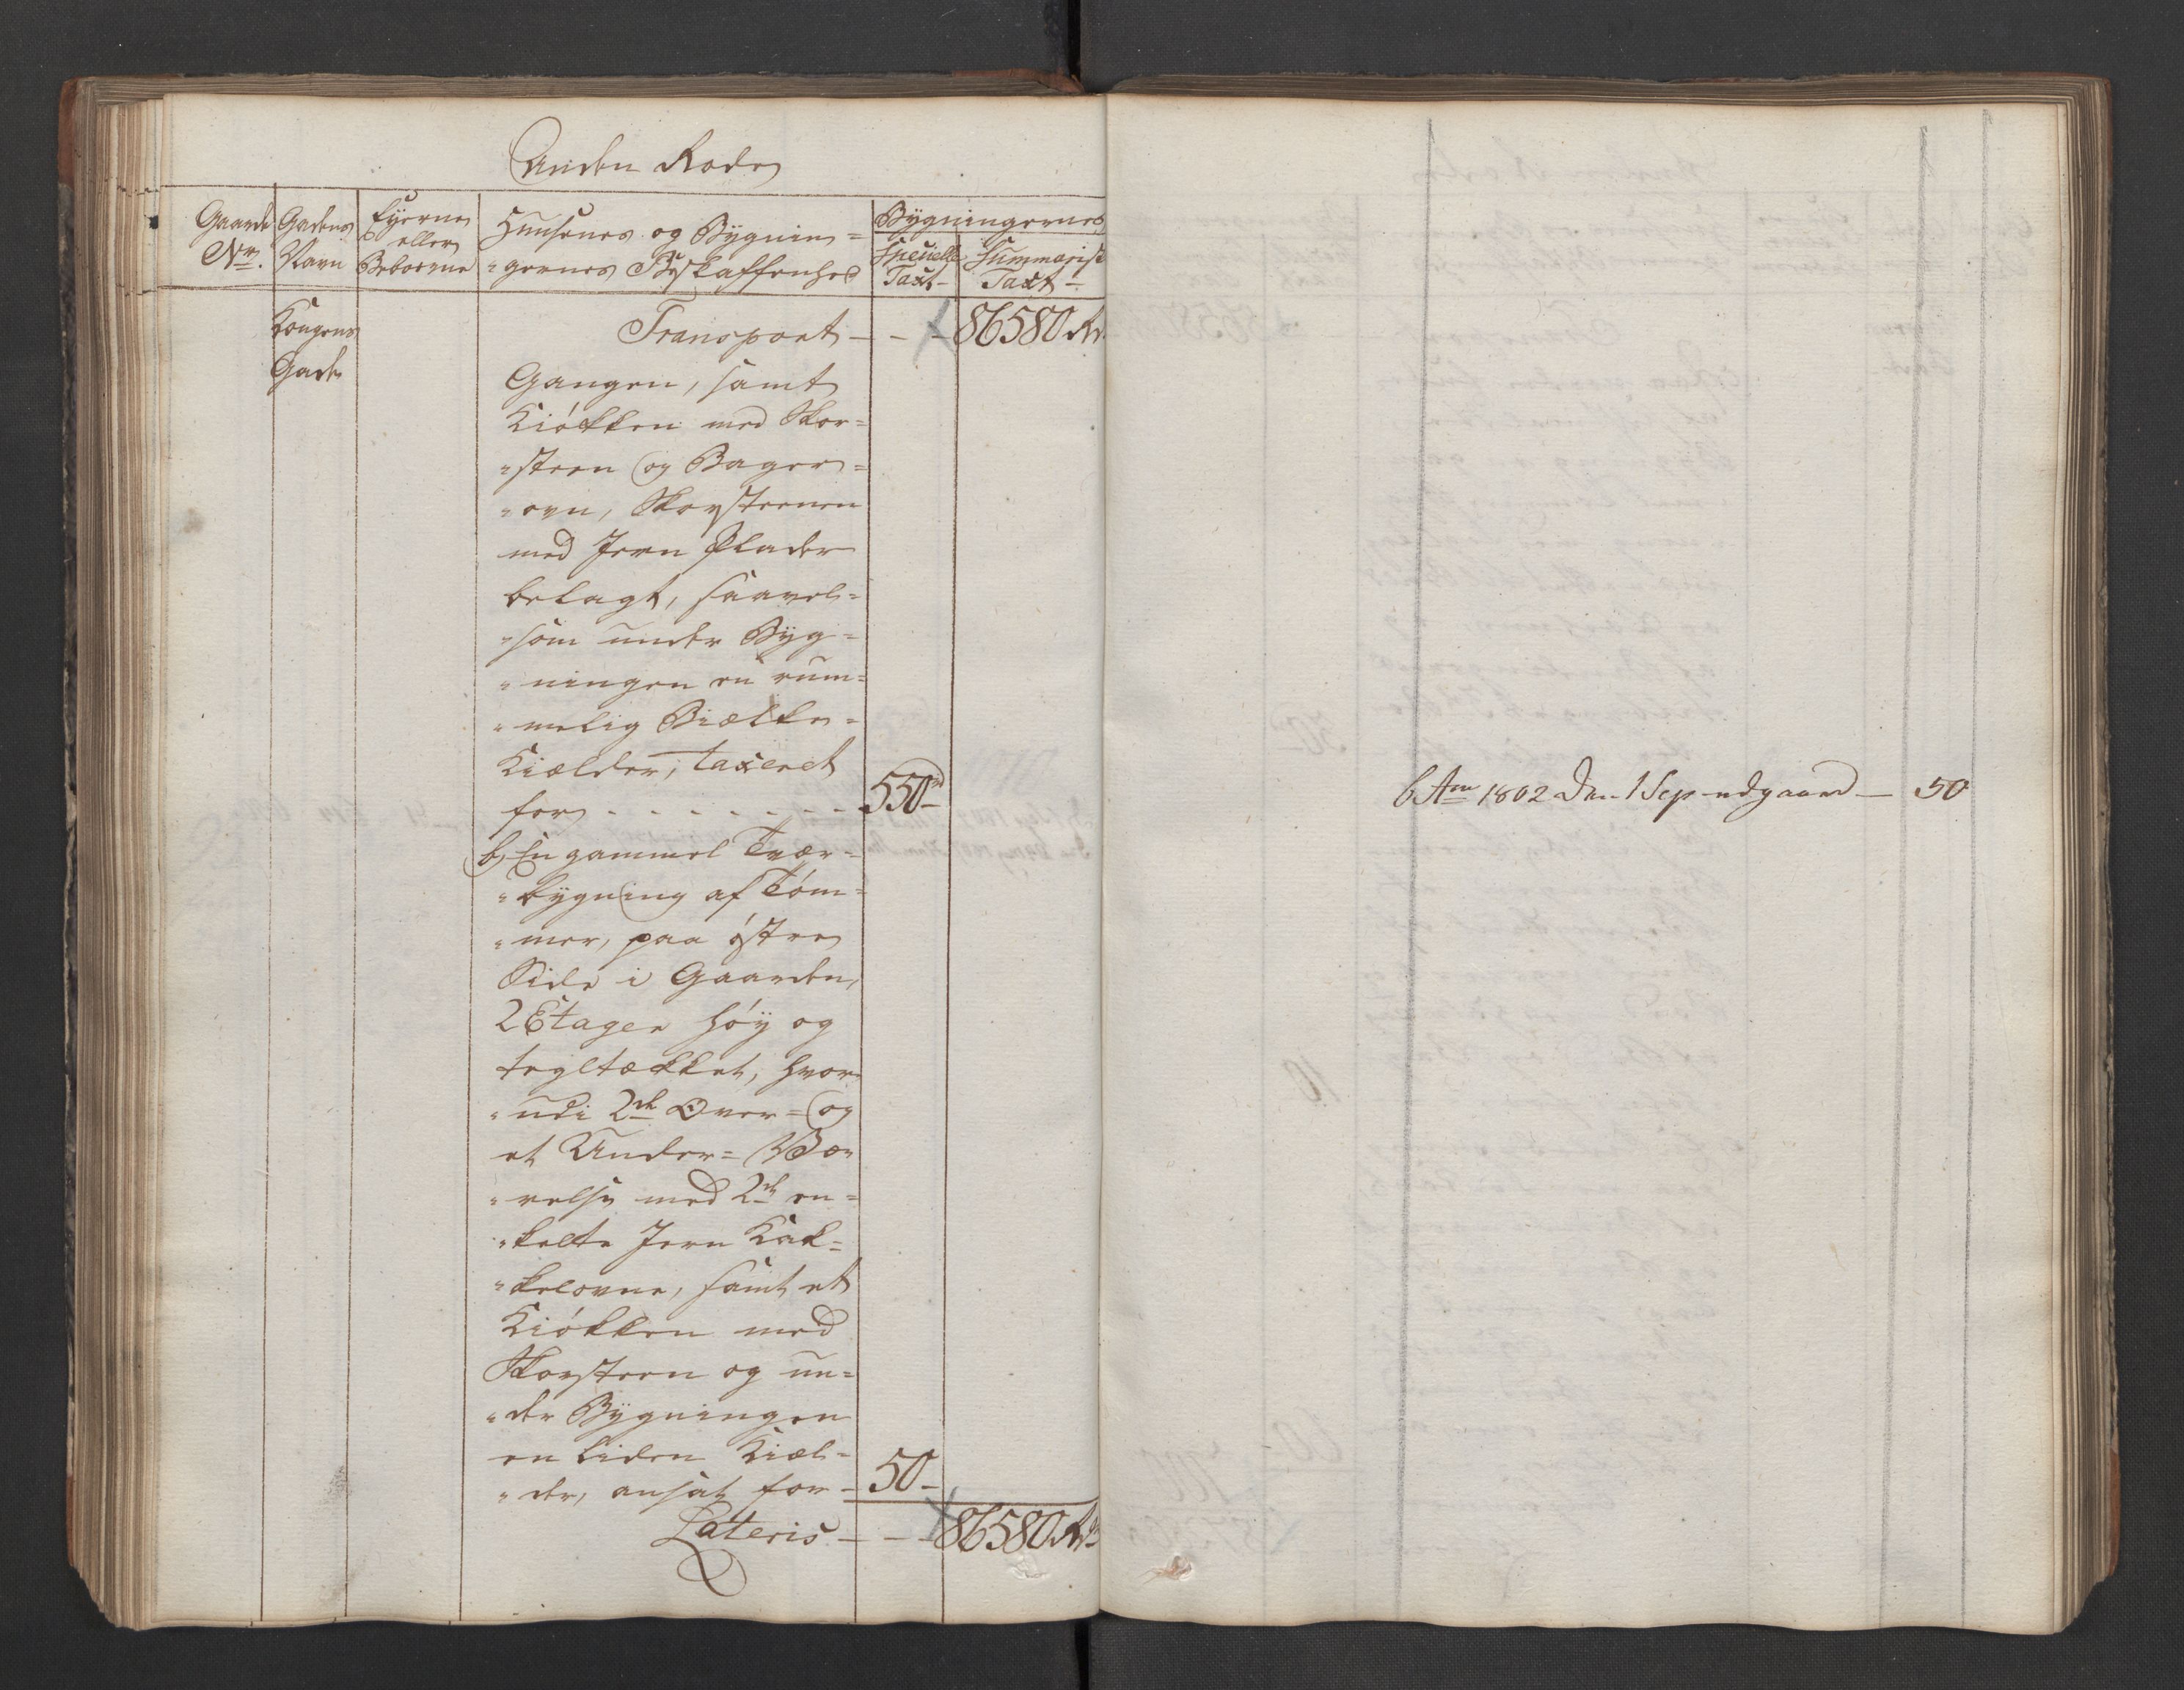 Anden Rode
Gaarde Nr.
Gadens Navn
Eÿerne eller Beboerne
Huusenes og Bÿgnin=
"gernes Beskaffenhed
Bÿgningernes
Specielle Taxt
Summarisk Taxt
Kongens
Gade
Transport - - - 86580 Rd
Gangen, samt
Kiókken med Skor=
"steen og Bager=
"ovn, Skorsteenen
med Jern Plader
belagt, saavel=
"som under Bÿg=
"ningen en rum=
"melig Biælke=
Kiælder, taxeret
for - - - - - - - 550 rd
b, En gammel Tvær=
"bÿgning af Tóm=
"mer, paa óstre
Side i Gaarden,
2 Etager hóÿ og
tegltækket, hvor=
"udi 2de Over= og
et Under= Væ=
"relse med 2de en=
"kelte Jern Kak=
"kelovne, samt et
Kiókken med
Skorsteen og un=
"der Bÿgningen
en liden Kiæl=
"der, ansat for - 50 -
Lateris - - - 86580 Rd
b Ao 1802 den 1 Sep udgaaed - 50